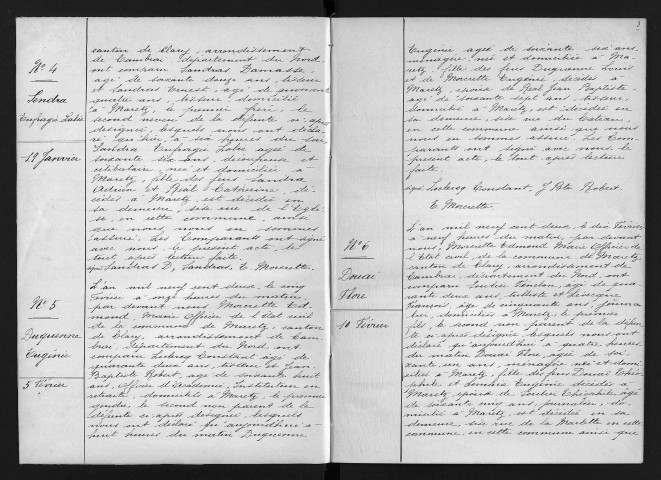 Nº 4
Sendra
18 Janvier
Nº 5
Duquesnne
Eugénie
5 Février
canton de Clary, arrondissement
de Cambrai, département du Nord,
ont comparu Sandras Damasse,
agé de soixante douze ans, tisseur
et Sandras Ernest, agé de
quatre ans, tisseur, domicilié
à Maretz, le premier frère, le
second neveu de la défunte ci-après
désignée, lesquels nous ont décla-
ré qu'hier, à six heures du soir,
agée de
soixante six ans,
célibataire, née et domiciliée à
Maretz, fille des feus Sandra
Adrien et Réal Catherine, dé-
cédés à Maretz est décédée en
sa demeure, sise rue de l'Egli-
se, en cette commune, ainsi
que nous nous en sommes
assuré. Les Comparants ont signé
avec nous le présent acte, le
tout après lecture faite.
signé Sandras D, Sandras, E. Moerette.
L'an mil neuf cent deux, le cinq
Février à onze heures du matin,
par devant nous Ed-
mond, Maire Officier de l'Etat civil
de la commune de Maretz, canton
de Clary, arrondissement de Cam-
brai, département du Nord, ont
comparu Leclercq Constant agé de
quarante deux ans, tisseur et
Baptiste Robert, agé de soixante huit
ans, Officier d'Académie, Instituteur en
retraite, domiciliés à Maretz, le premier
gendre, le second non parent de la
défunte ci-après désignée, lesquels
nous ont déclaré qu'aujourd'hui à
huit heures du matin Duquesnne
3
Eugénie agée de soixante six ans,
ménagère, née et domiciliée à Ma-
retz, fille des feus Duquesnne Louis
et de Eugénie, décédés à
Maretz, épouse de Réal Jean Baptiste,
agé de soixante sept ans, tisseur,
domicilié à Maretz, est décédée en
sa demeure, sise rue du Cateau,
en cette commune ainsi que nous
nous en sommes assuré. Les Com-
parants ont signé avec nous le
présent acte, le tout après lecture
faite.
signé Leclercq Constant, J. Bte Robert.
E. Moerette.
Nº 6
Douai
Flore
10 Février
L'an mil neuf cent deux, le dix Février
à neuf heures du matin, par devant
nous, Edmond Maire Officier de
l'Etat civil, de la commune de Maretz,
canton de Clary, arrondissement de
Cambrai, département du Nord, ont
comparu Fénelon, agé de qua-
rante deux ans, tulliste et Lévecque
François, agé de cinquante ans, journa-
lier, domiciliés à Maretz, le premier
fils, le second non parent de la défun-
te ci-après désignée, lesquels nous ont
déclaré qu'aujourd'hui à quatre heures
du matin Douai Flore, agée de soi-
xante un ans, ménagère née et domi-
ciliée à Maretz, fille des feus Douai Théo-
phile et Eugénie décédés à
Maretz, épouse de Théophile, agé
de soixante cinq ans, journalier, do-
micilié à Maretz, est décédée en sa
demeure, sise rue de la en cette
commune, en cette commune ainsi que